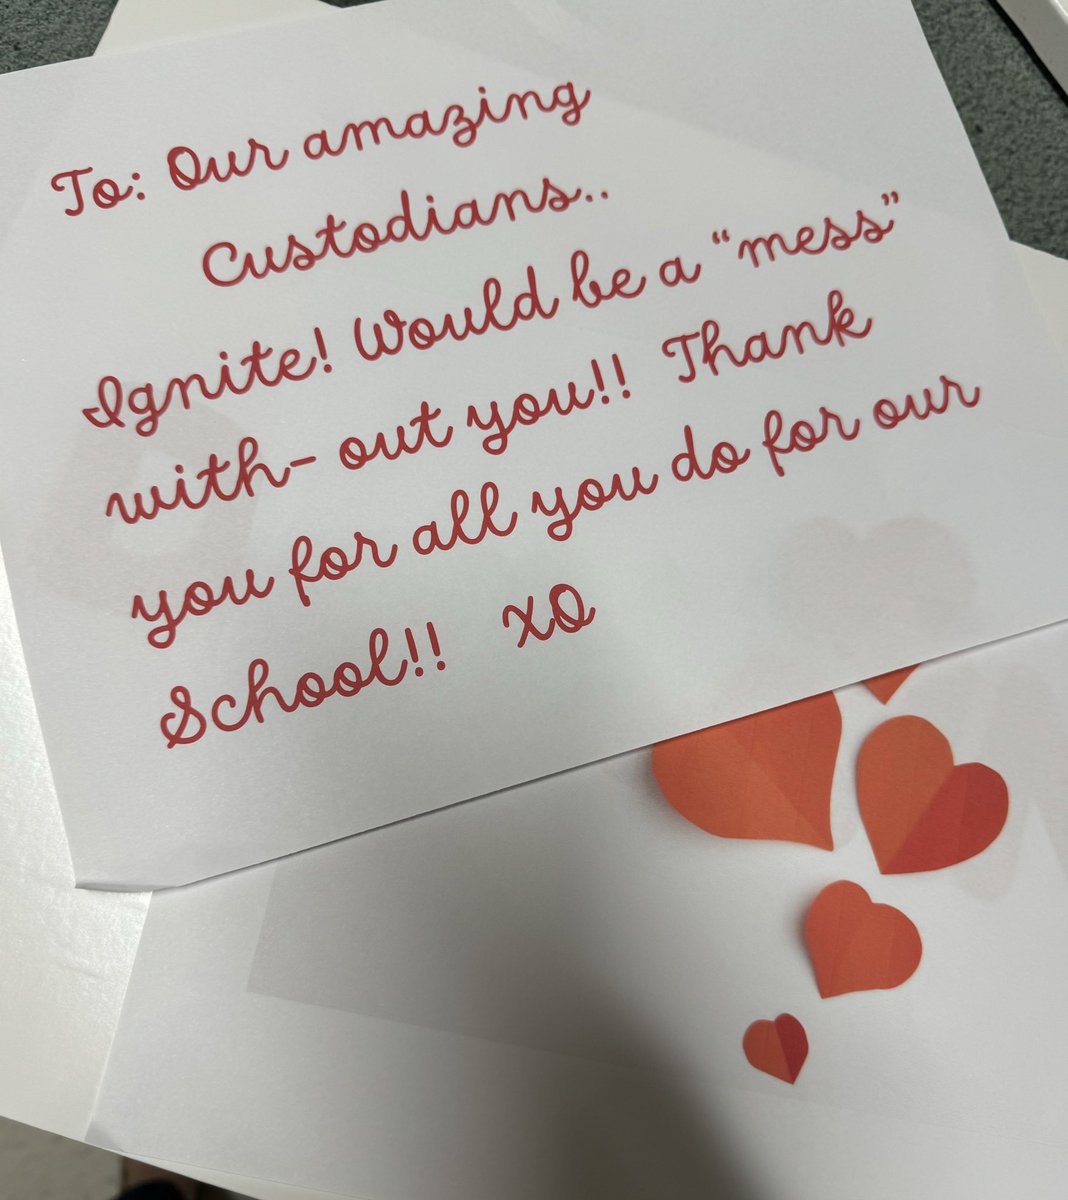 To: Our amazing
Custodians..
Ignite! Would be a “mess”
with- out you!! Thank
you for all you do for our
School!! XO